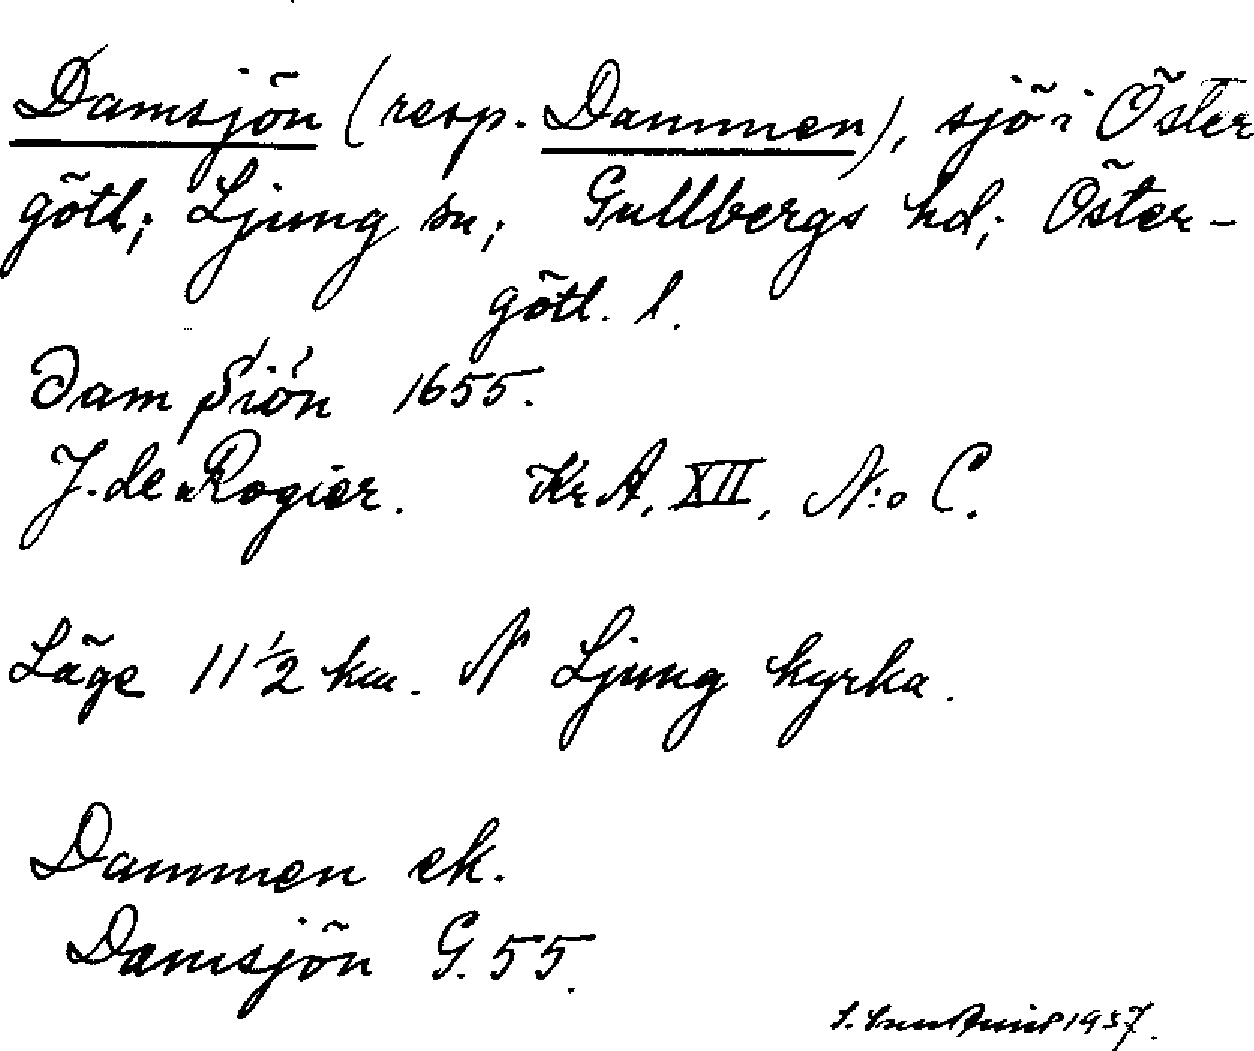 Damsjön (resp. Dammen), sjö i Öster
götl; Ljung sn; Gullbergs hd; Öster-
götl. l.
Dam Siön 1655.
J. de Rogier. Kr A, XII, N:o C.
Läge 11 1/2 km. N Ljung kyrka.
Dammen ek.
Damsjön G. 55.
1937.